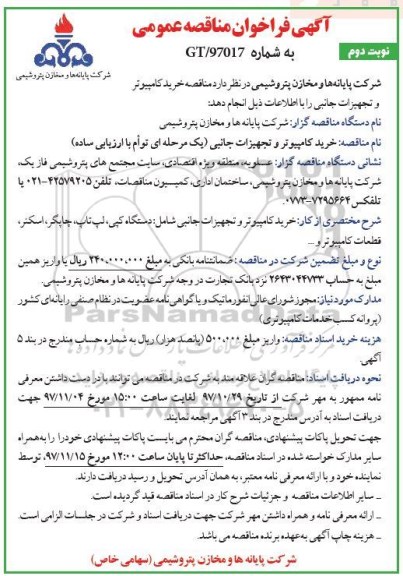 آگهی فراخوان مناقصه عمومی
نوبت دوم
به شماره GT/97017
شرکت پایانه‌ها و مخازن پتروشیمی
شرکت پایانه‌ها و مخازن پتروشیمی در نظر دارد مناقصه خرید کامپیوتر
و تجهیزات جانبی را با اطلاعات ذیل انجام دهد:
نام دستگاه مناقصه گزار: شرکت پایانه ها و مخازن پتروشیمی
نام مناقصه: خرید کامپیوتر و تجهیزات جانبی (یک مرحله ای توأم با ارزیابی ساده)
نشانی دستگاه مناقصه گزار: عسلویه، منطقه ویژه اقتصادی، سایت مجتمع های پتروشیمی فاز یک،
شرکت پایانه ها و مخازن پتروشیمی، ساختمان اداری، کمیسیون مناقصات، تلفن ۴۲۵۷۹۲۰۵-۰۲۱ یا
تلفکس ۷۲۹۵۶۶۴-۰۷۷۳
شرح مختصری از کار: خرید کامپیوتر و تجهیزات جانبی شامل: دستگاه کپی، لپ تاپ، چاپگر، اسکنر،
قطعات کامپیوتر و...
نوع و مبلغ تضمین شرکت در مناقصه: ضمانتنامه بانکی به مبلغ ۲۴۰,۰۰۰,۰۰۰ ریال یا واریز همین
مبلغ به حساب ۲۶۴۳۰۴۴۷۳۳ نزد بانک تجارت در وجه شرکت پایانه ها و مخازن پتروشیمی.
مدارک مورد نیاز: مجوز شورای عالی انفورماتیک و یا گواهی نامه عضویت در نظام صنفی رایانه‌ای کشور
(پروانه کسب خدمات کامپیوتری)
هزینه خرید اسناد مناقصه: واریز مبلغ ۵۰۰,۰۰۰ (پانصد هزار) ریال به شماره حساب مندرج در بند ۵
آگهی
نحوه دریافت اسناد: مناقصه گران علاقه مند به شرکت در مناقصه می توانند با در دست داشتن معرفی
نامه ممهور به مهر شرکت از تاریخ ۹۷/۱۰/۲۹ لغایت ساعت ۱۵:۰۰ مورخ ۹۷/۱۱/۰۴ جهت
دریافت اسناد به آدرس مندرج در بند ۳ آگهی مراجعه نمایند.
جهت تحویل پاکات پیشنهادی، مناقصه گران محترم می بایست پاکات پیشنهادی خود را به همراه
سایر مدارک خواسته شده در اسناد مناقصه، حداکثر تا پایان ساعت ۱۲:۰۰ مورخ ۹۷/۱۱/۱۵، توسط
نماینده خود و با ارائه معرفی نامه معتبر، به همان آدرس تحویل و رسید دریافت دارند.
ـ سایر اطلاعات مناقصه و جزئیات شرح کار در اسناد مناقصه قید گردیده است.
ـ ارائه معرفی نامه و همراه داشتن مهر شرکت جهت دریافت اسناد و شرکت در جلسات الزامی است.
ـ هزینه چاپ آگهی به عهده برنده مناقصه می باشد.
شرکت پایانه ها و مخازن پتروشیمی (سهامی خاص)
ParsNamadData